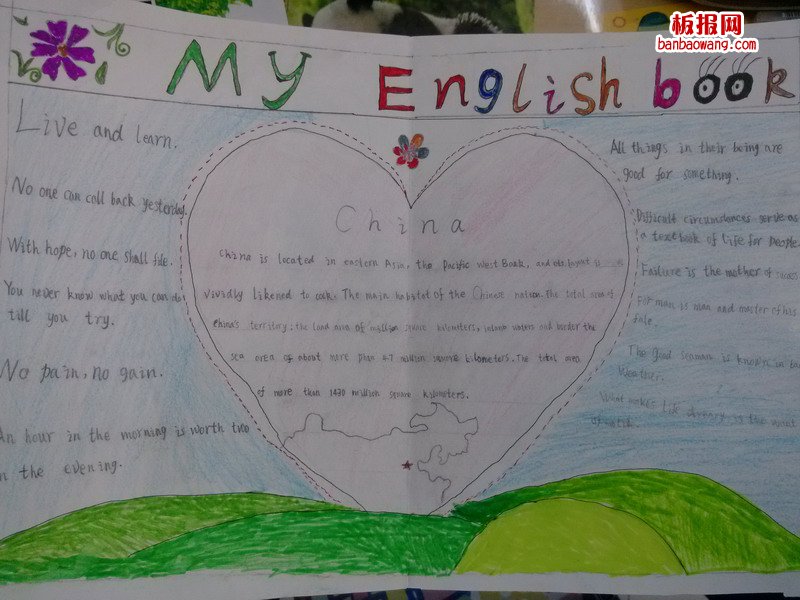 板报网
banbaowang.com
My English book
Live and learn.
No one can call back yesterday.
With hope, no one shall file.
You never know what you can do
till you try.
No pain, no gain.
An hour in the morning is worth two
in the evening.
China
China is located in eastern Asia, the Pacific West Bank, and its layout is
vividly likened to cock. The main habitat of the Chinese nation. The total area of
China's territory: the land area of million square kilometers, inland waters and border the
sea area of about more than 4.7 million square kilometers. The total area
of more than 1430 million square kilometers.
All things in their being are
good for something.
Difficult circumstances serve as
a textbook of life for people.
Failure is the mother of success
For man is man and master of his
fate.
The good seaman is known in bad
weather.
What makes life dreary is the want
of